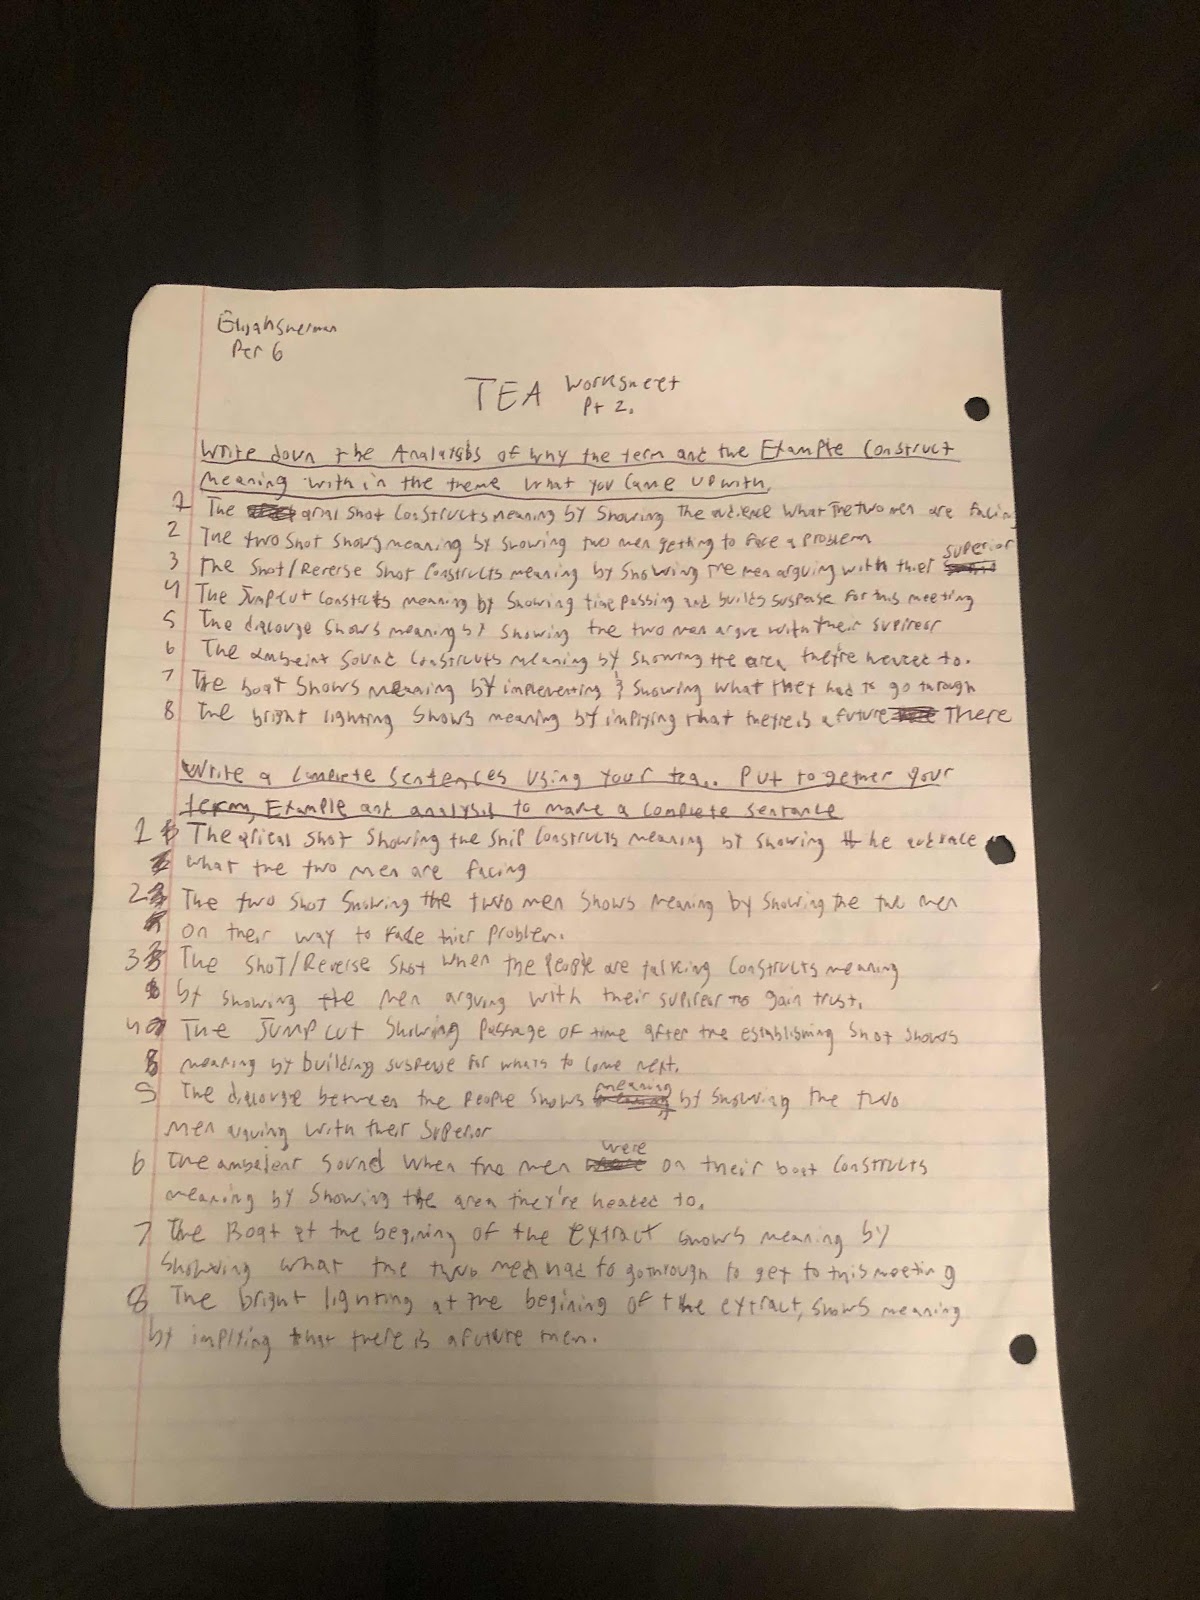 Elijah Sherman
Per 6
TEA Worksheet
Pt 2.
Write down the Analaysis of why the term and the Example Construct
meaning with in the theme what you came up with.
1 The arial shot Constructs meaning by Showing The audience what The two men are facing
2 The two Shot Shows meaning by showing two men getting to face a problem
3 The Shot/Rererse Shot Constructs meaning by Showing The men arguing with thier superior
4 The Jump Cut Constructs meaning by Showing time passing and builds suspense for this meeting
5 The dialouge Shows meaning by showing the two men argue with their supireor
6 The ambeint Sound Constructs meaning by showing the area they're headed to.
7 The boat Shows meaning by implementing & showing what they had to go through
8 The bright lighting Shows meaning by implying that there is a future There
Write a Complete Sentences Using Your tea.. Put together your
term, Example and analysis to make a complete sentance
1 The arical Shot Showing the Ship Constructs meaning by showing the audiance
what the two men are facing
2 The two Shot Showing the two men Shows meaning by showing the two men
on their way to face thier problem.
3 The Shot/Reverse Shot when the People are talking Constructs meaning
by showing the men arguing with their supirear to gain trust.
4 The Jump cut Showing Passage of time after the establishing Shot shows
meaning by building suspense for whats to come next.
5 The dialouge between the People Shows meaning by showing the two
men arguing with their Superior
6 The ambeient Sound when the men were on their boat Constructs
meaning by Showing the area they're headed to.
7 The Boat at the begining of the extract shows meaning by
Showing what the two men had to go through to get to this meeting
8 The bright lighting at the begining of the extract, shows meaning
by implying that there is a future them.